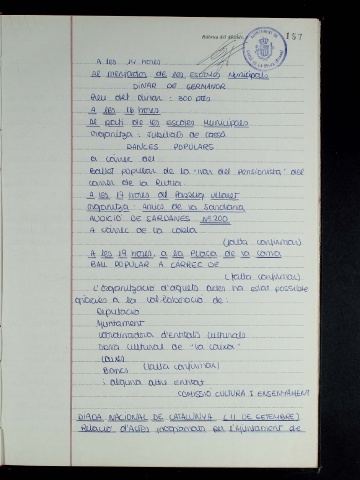 Rúbrica del
157
A les 14 hores
Al menjador de les escoles Municipals
DINAR DE GERMANOR
Preu del dinar : 300 pts
A les 16 hores
Al pati de les escoles Municipals
organitza : Jubilats de Cassà
DANCES POPULARS
a càrrec del
Ballet popular de la "llar del Pensionista" del
carrer de la Rutlla
A les 17 hores al Passeig Vilaret
organitza : Amics de la Sardana
AUDICIÓ DE SARDANES Nº 200
A càrrec de la cobla
(falta confirmar)
A les 19 hores, a la Plaça de la Coma
BALL POPULAR A CÀRREC DE
(falta confirmar)
L'organització d'aquets actes ha estat possible
gràcies a la col·laboració de :
Diputació
Ajuntament
Coordinadora d'entitats culturals
Obra cultural de "la caixa"
Caixes
Bancs (falta confirmar)
i alguna altre entitat
COMISSIÓ CULTURA I ENSENYAMENT
DIADA NACIONAL DE CATALUNYA (11 DE SETEMBRE)
Relació d'Actes programats per l'Ajuntament de